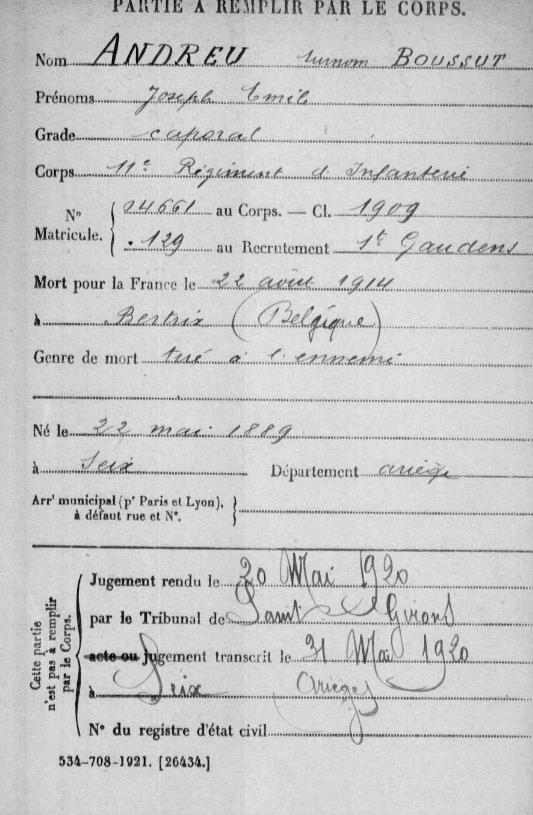 PARTIE À REMPLIR PAR LE CORPS.
Nom ANDREU surnom BOUSSUT
Prénoms Joseph Emile
Grade caporal
Corps 11e Régiment d'Infanterie
N° Matricule. { 04661 au Corps. — Cl. 1909
129 au Recrutement St Gaudens
Mort pour la France le 22 août 1914
à Bertrix (Belgique)
Genre de mort tué à l'ennemi
Né le 22 mai 1889
à Seix Département ariège
Arrt municipal (pr Paris et Lyon), à défaut rue et N°. }
Cette partie n'est pas à remplir par le Corps. {
Jugement rendu le 20 Mai 1920
par le Tribunal de Saint Girons
acte ou jugement transcrit le 31 Mai 1920
à Seix Ariège
N° du registre d'état civil
534-708-1921. [26434.]